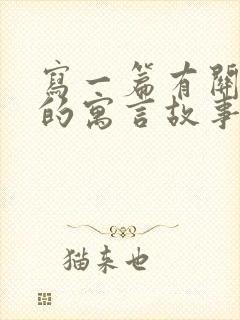 寫一篇有關
的寓言故事
猫来也